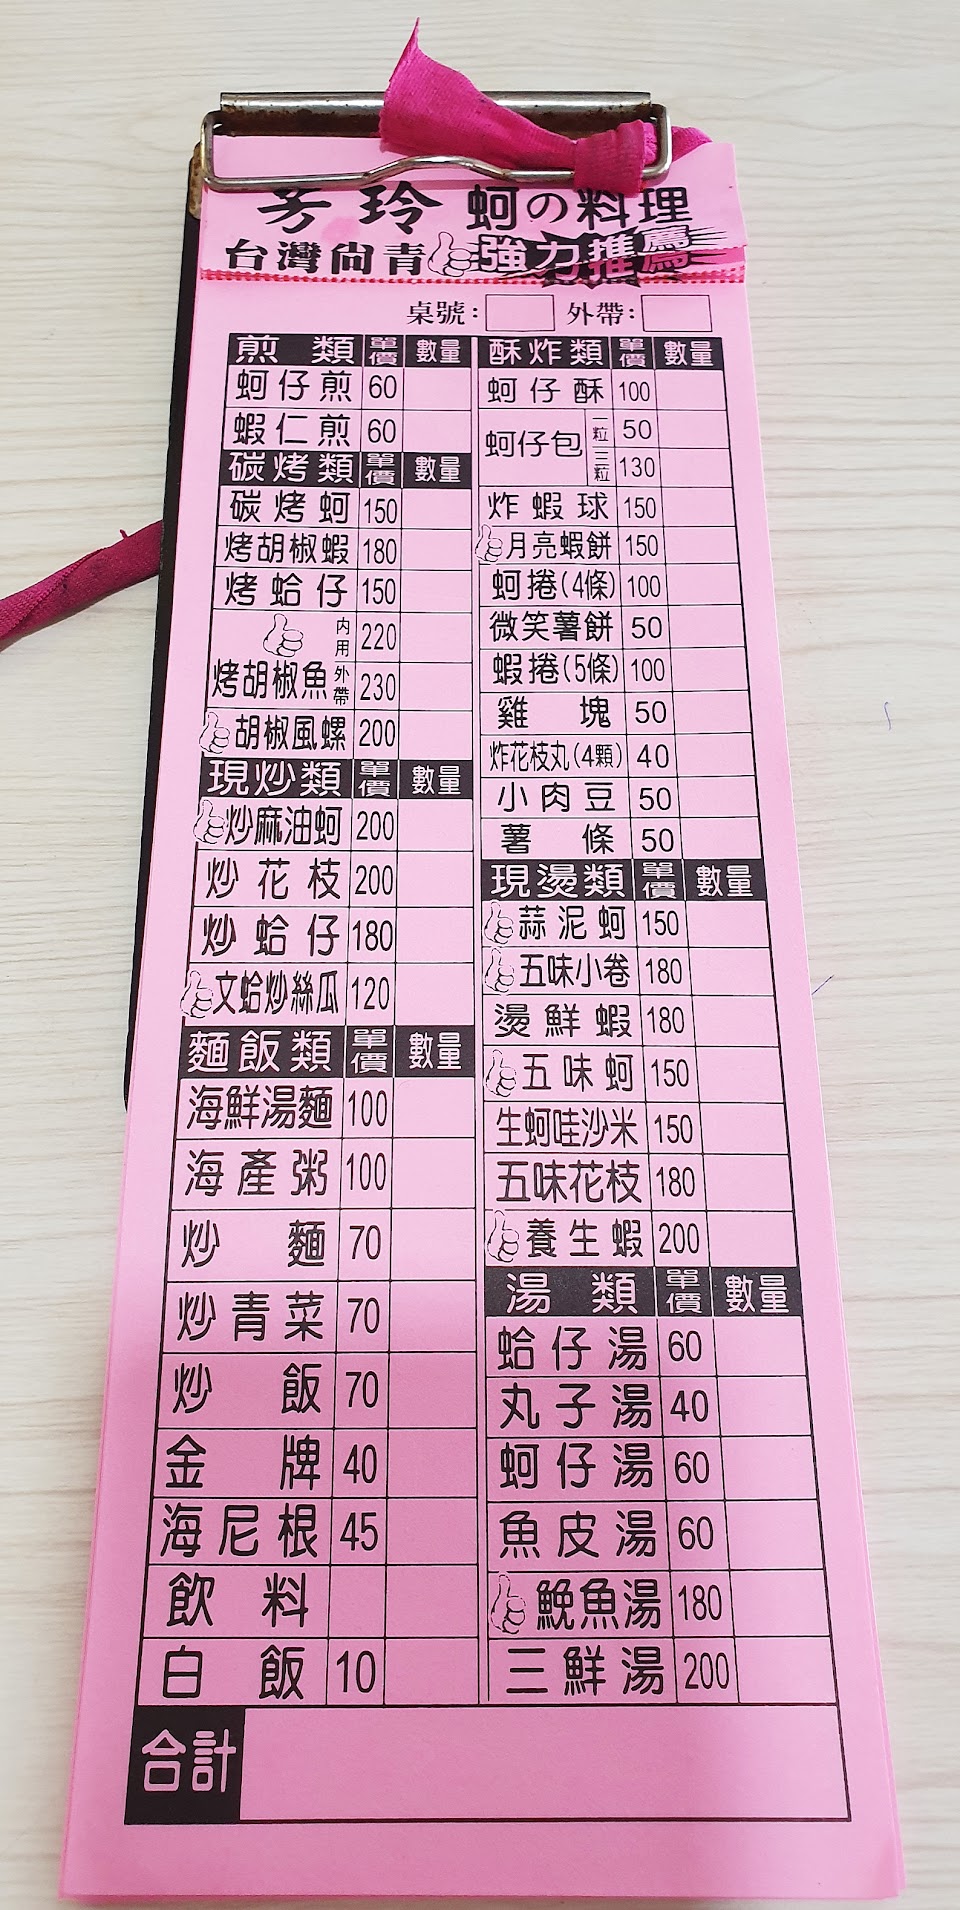 芳玲 蚵の料理
台灣尚青 強力推薦
桌號: 外帶:
煎類 單價 數量
蚵仔煎 60
蝦仁煎 60
碳烤類 單價 數量
碳烤蚵 150
烤胡椒蝦 180
烤蛤仔 150
烤胡椒魚 內用 220
外帶 230
胡椒風螺 200
現炒類 單價 數量
炒麻油蚵 200
炒花枝 200
炒蛤仔 180
文蛤炒絲瓜 120
麵飯類 單價 數量
海鮮湯麵 100
海產粥 100
炒麵 70
炒青菜 70
炒飯 70
金牌 40
海尼根 45
飲料
白飯 10
酥炸類 單價 數量
蚵仔酥 100
蚵仔包 一粒 50
三粒 130
炸蝦球 150
月亮蝦餅 150
蚵捲(4條) 100
微笑薯餅 50
蝦捲(5條) 100
雞塊 50
炸花枝丸(4顆) 40
小肉豆 50
薯條 50
現燙類 單價 數量
蒜泥蚵 150
五味小卷 180
燙鮮蝦 180
五味蚵 150
生蚵哇沙米 150
五味花枝 180
養生蝦 200
湯類 單價 數量
蛤仔湯 60
丸子湯 40
蚵仔湯 60
魚皮湯 60
鮸魚湯 180
三鮮湯 200
合計